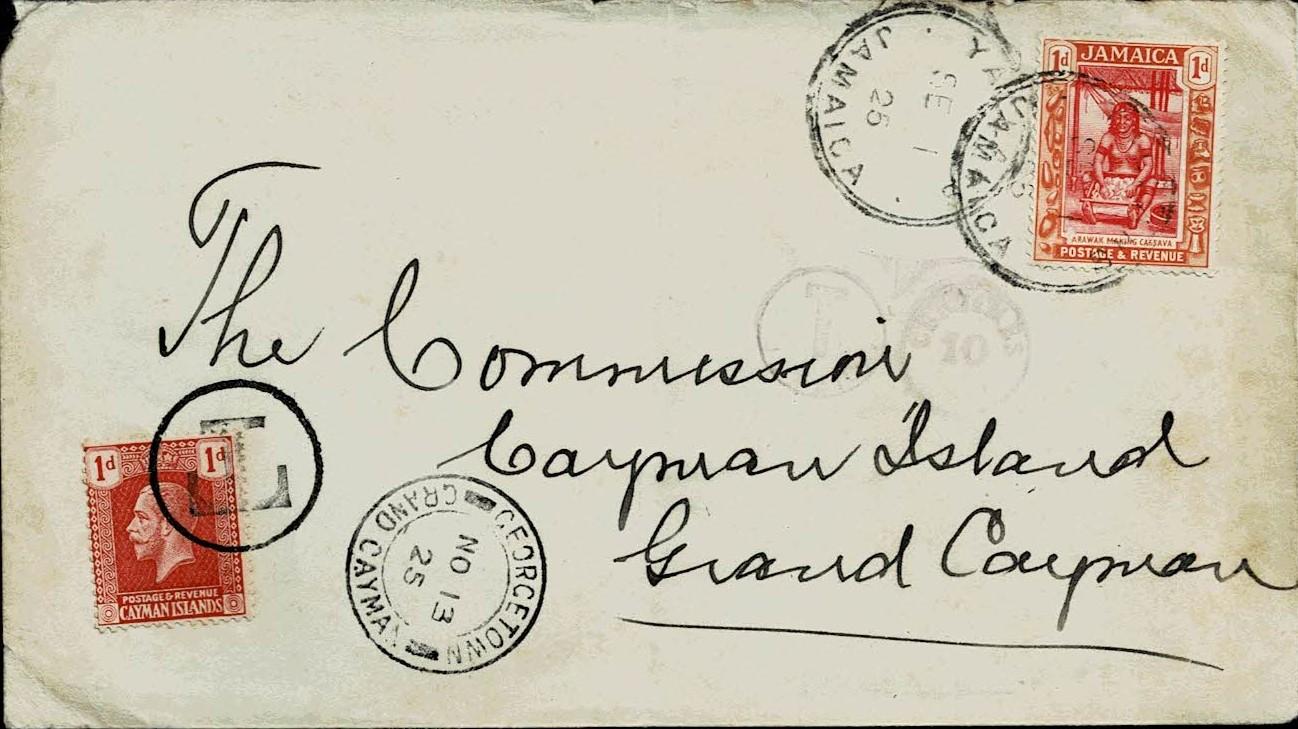 JAMAICA
SE 1
25
JAMAICA
1d JAMAICA 1d
ARAWAK MAKING CASSAVA
POSTAGE & REVENUE
T
10
The Commission
Cayman Island
Grand Cayman
T
1d 1d
POSTAGE & REVENUE
CAYMAN ISLANDS
GEORGETOWN
NO 13
25
GRAND CAYMAN